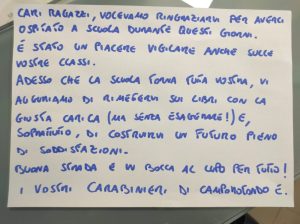 CARI RAGAZZI, VOLEVAMO RINGRAZIARVI PER AVERCI
OSPITATO A SCUOLA DURANTE QUESTI GIORNI.
È STATO UN PIACERE VIGILARE ANCHE SULLE
VOSTRE CLASSI.
ADESSO CHE LA SCUOLA TORNA TUTTA VOSTRA, VI
AUGURIAMO DI RIMETTERVI SUI LIBRI CON LA
GIUSTA CARICA (MA SENZA ESAGERARE!) E,
SOPRATUTTO, DI COSTRUIRVI UN FUTURO PIENO
DI SODDISFAZIONI.
BUONA STRADA E IN BOCCA AL LUPO PER TUTTO!
I VOSTRI CARABINIERI DI CAMPOROTONDO E.